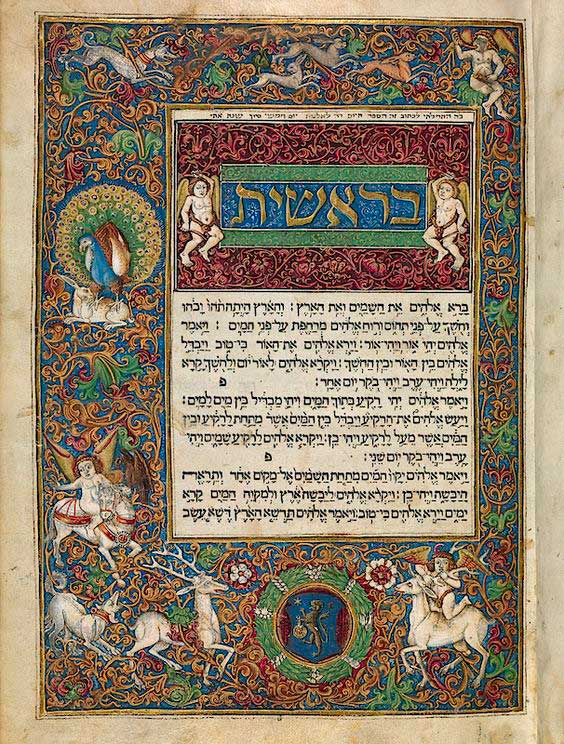 בראשית
ברא אלהים את השמים ואת הארץ: והארץ היתה תהו ובהו
וחשך על פני תהום ורוח אלהים מרחפת על פני המים: ויאמר
אלהים יהי אור ויהי אור: וירא אלהים את האור כי טוב ויבדל
אלהים בין האור ובין החשך: ויקרא אלהים לאור יום ולחשך קרא
לילה ויהי ערב ויהי בקר יום אחד: פ
ויאמר אלהים יהי רקיע בתוך המים ויהי מבדיל בין מים למים:
ויעש אלהים את הרקיע ויבדל בין המים אשר מתחת לרקיע ובין
המים אשר מעל לרקיע ויהי כן: ויקרא אלהים לרקיע שמים ויהי
ערב ויהי בקר יום שני: פ
ויאמר אלהים יקוו המים מתחת השמים אל מקום אחד ותראה
היבשה ויהי כן: ויקרא אלהים ליבשה ארץ ולמקוה המים קרא
ימים וירא אלהים כי טוב: ויאמר אלהים תדשא הארץ דשא עשב